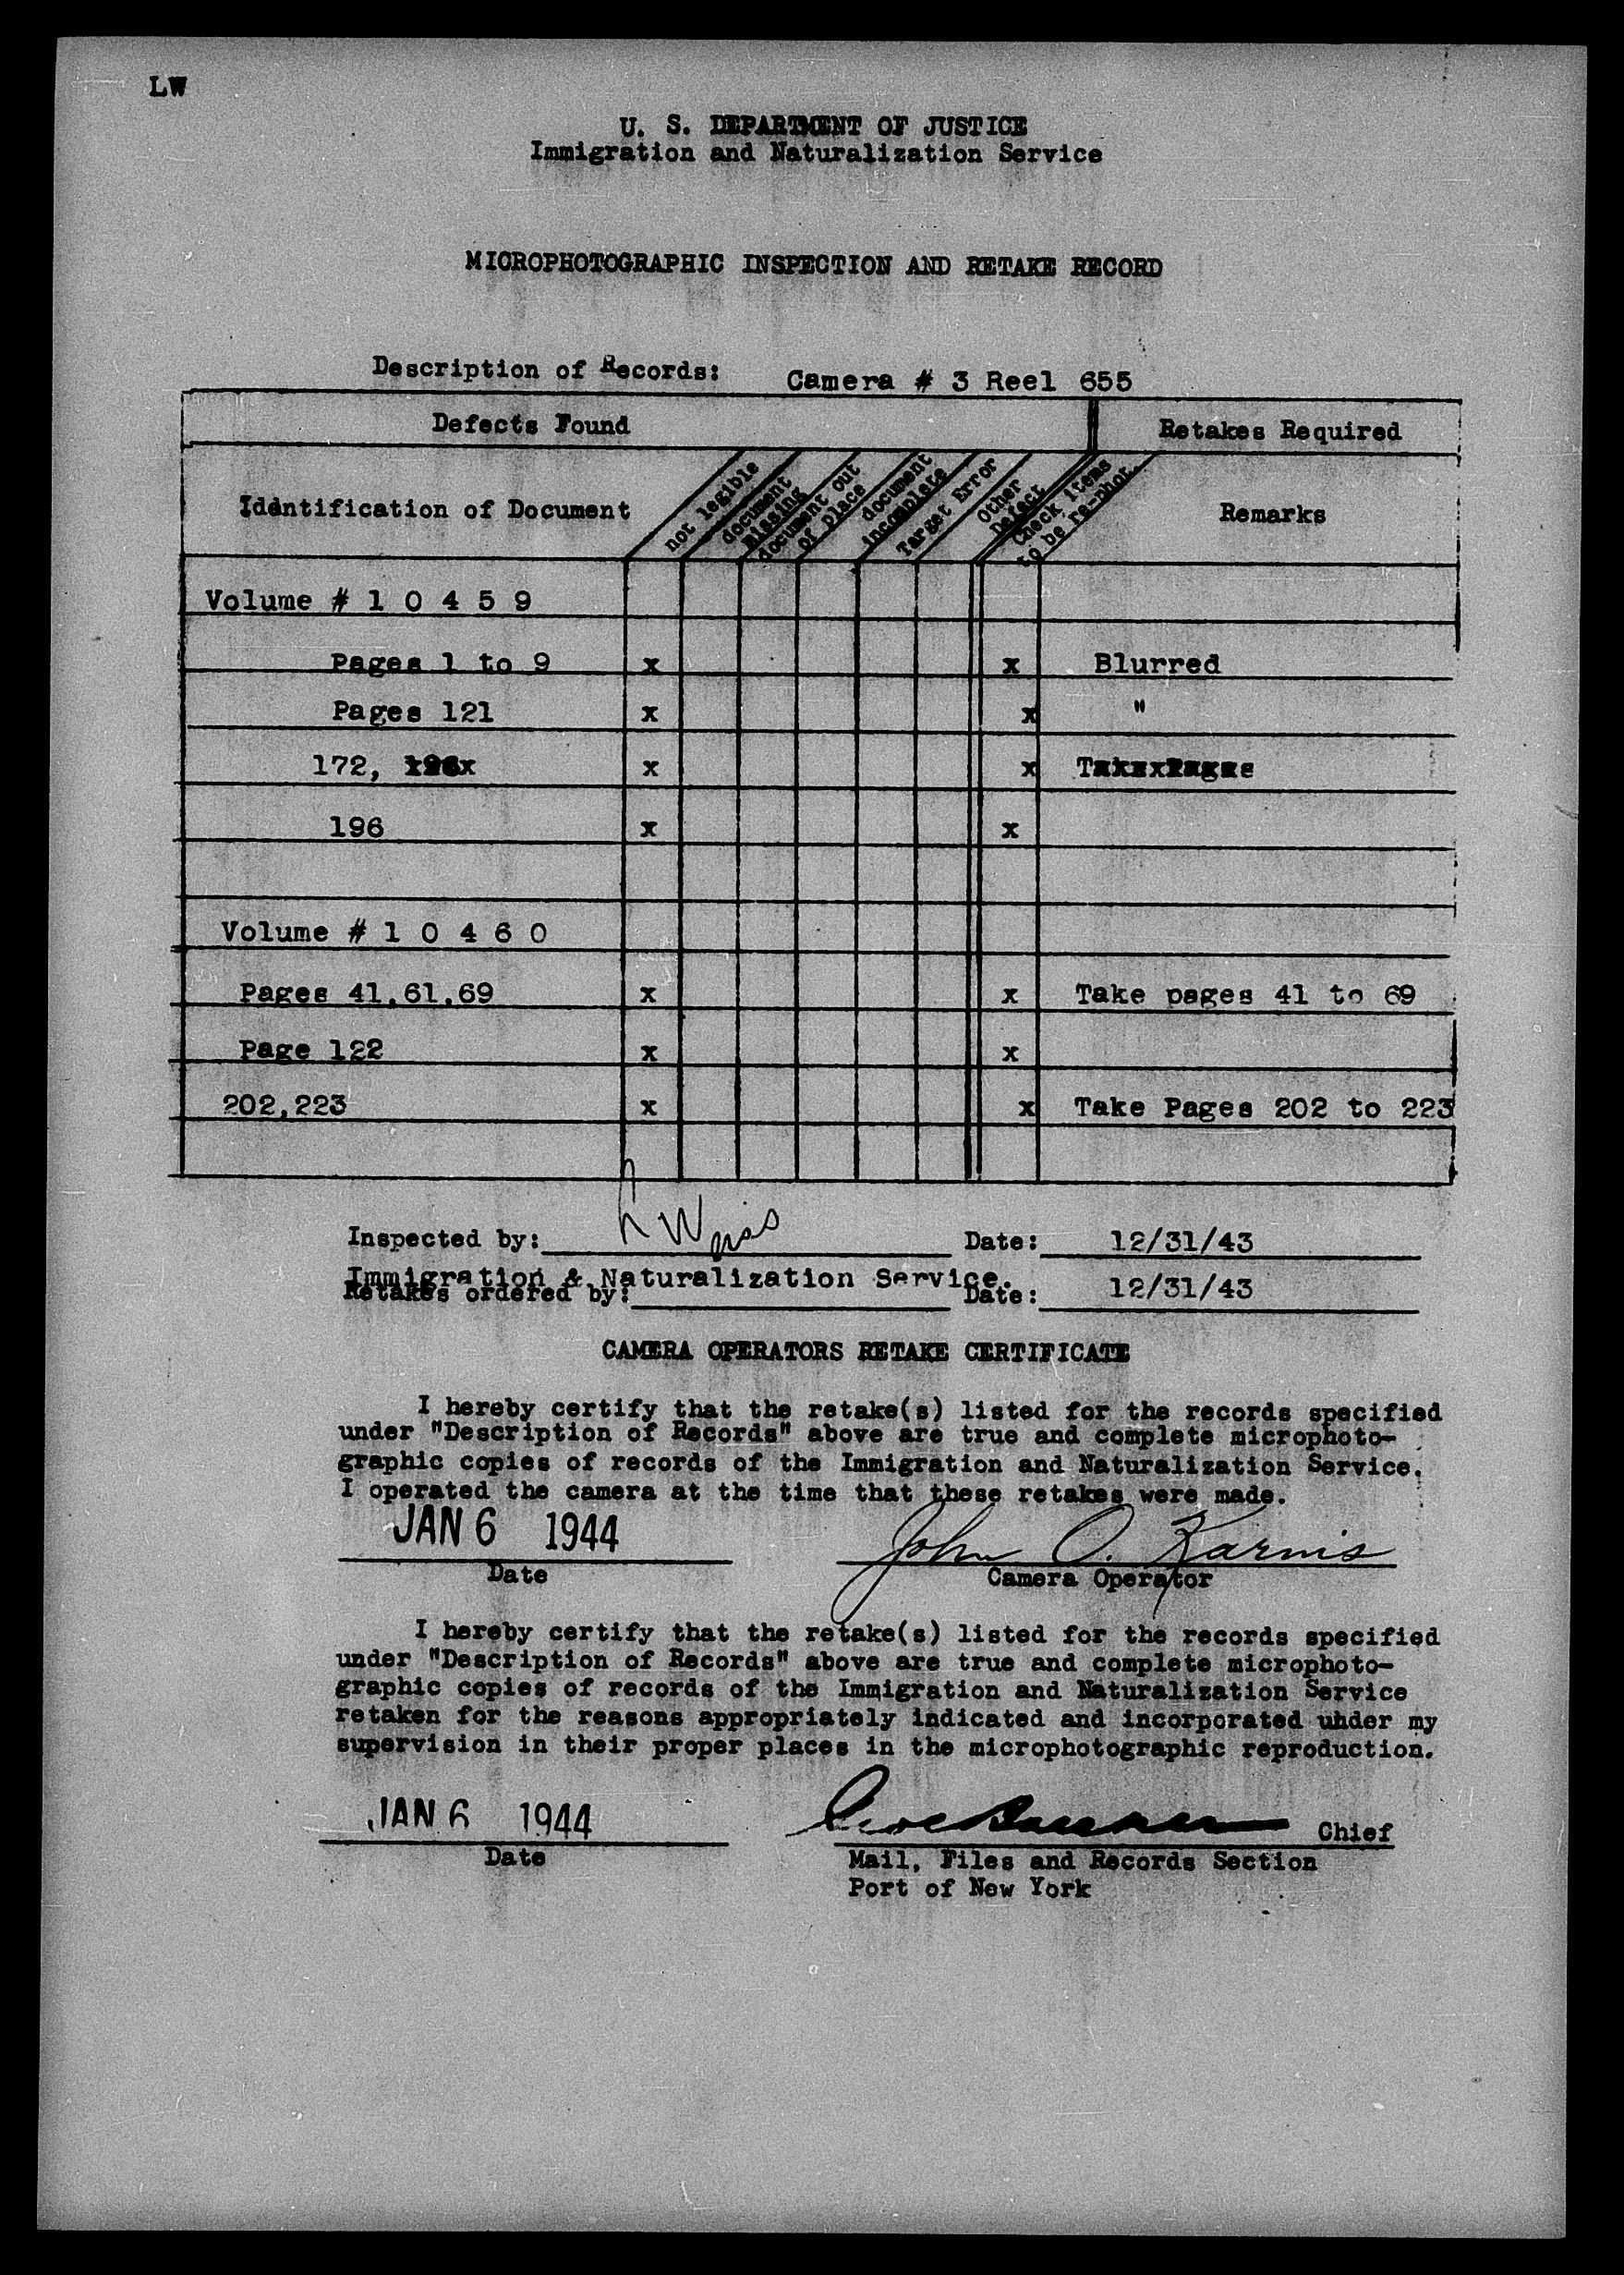 LW
U. S. DEPARTMENT OF JUSTICE
Immigration and Naturalization Service
MICROPHOTOGRAPHIC INSPECTION AND RETAKE RECORD
Description of Records: Camera # 3 Reel 655
Defects Found Retakes Required
Identification of Document
not legible
document
missing
document out
of place
document
incomplete
Target Error
Other
Defect
Check items
to be re-phot
Remarks
Volume # 1 0 4 5 9
Pages 1 to 9 x x Blurred
Pages 121 x x "
172, x x
196 x x
Volume # 1 0 4 6 0
Pages 41,61,69 x x Take pages 41 to 69
Page 122 x x
202,223 x x Take Pages 202 to 223
Inspected by: Weiss Date: 12/31/43
Immigration & Naturalization Service.
Retakes ordered by: Date: 12/31/43
CAMERA OPERATORS RETAKE CERTIFICATE
I hereby certify that the retake(s) listed for the records specified
under "Description of Records" above are true and complete microphoto-
graphic copies of records of the Immigration and Naturalization Service.
I operated the camera at the time that these retakes were made.
JAN 6 1944 John O. Karnis
Date Camera Operator
I hereby certify that the retake(s) listed for the records specified
under "Description of Records" above are true and complete microphoto-
graphic copies of records of the Immigration and Naturalization Service
retaken for the reasons appropriately indicated and incorporated under my
supervision in their proper places in the microphotographic reproduction.
JAN 6 1944 Chief
Date Mail, Files and Records Section
Port of New York